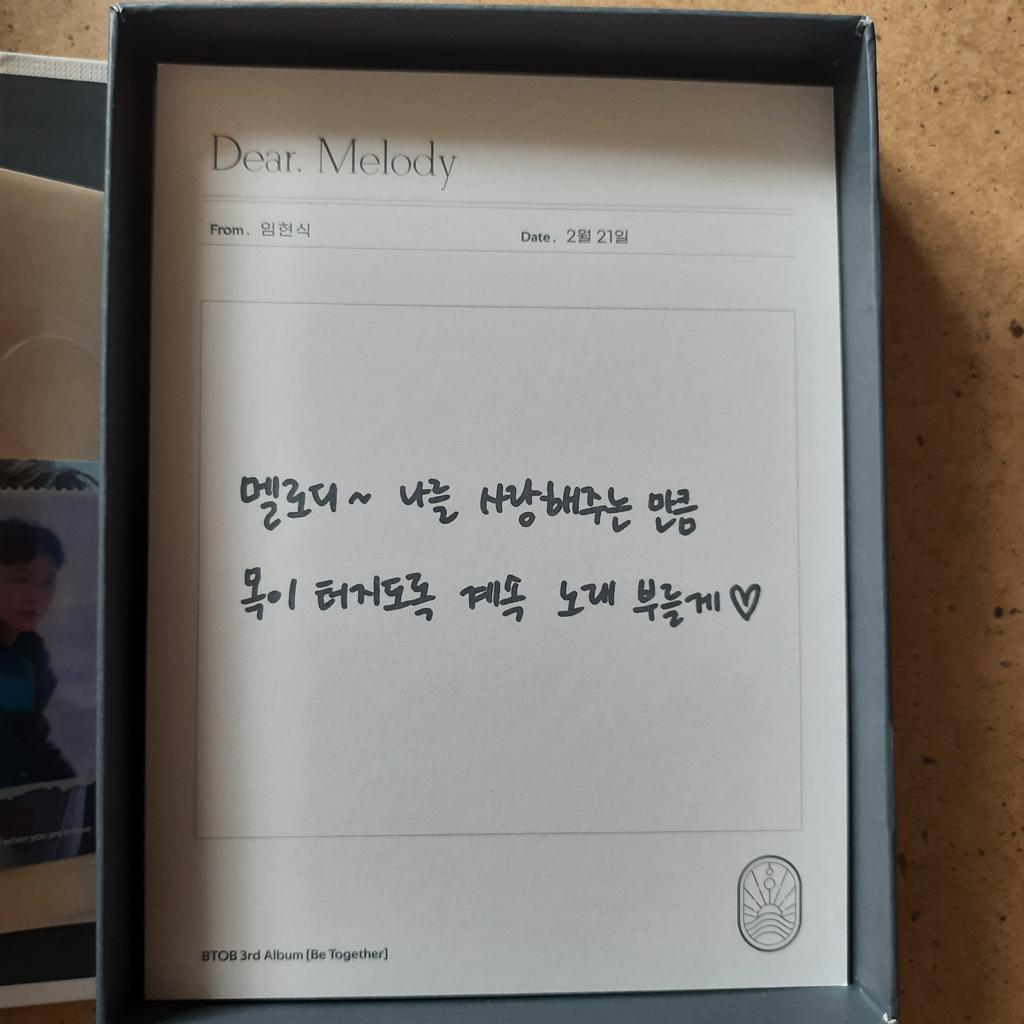 Dear. Melody
From. 임현식
Date. 2월 21일
멜로디~ 나를 사랑해주는 만큼
목이 터지도록 계속 노래 부를게♡
BTOB 3rd Album [Be Together]
when you are in love